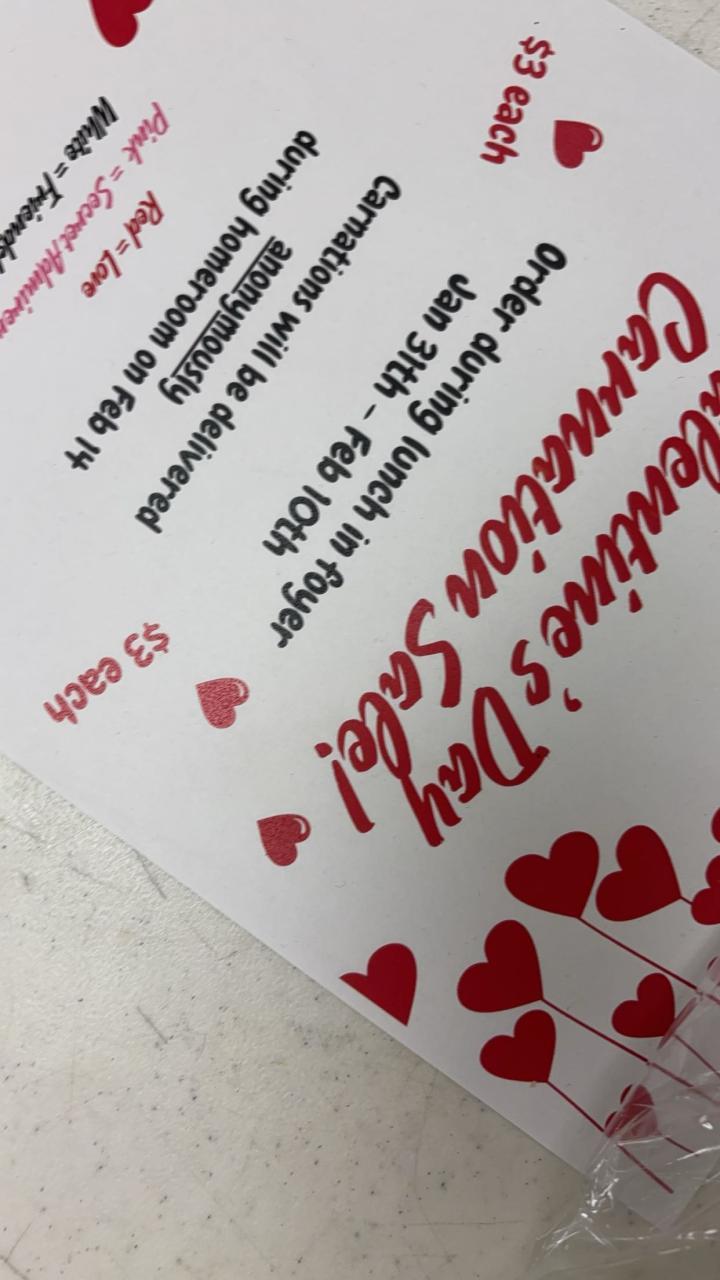 Valentine's Day
Carnation Sale!
Order during lunch in foyer
Jan 31th - Feb 10th
$3 each
$3 each
Carnations will be delivered
anonymously
during homeroom on Feb 14
Red = Love
Pink = Secret Admirer
White =